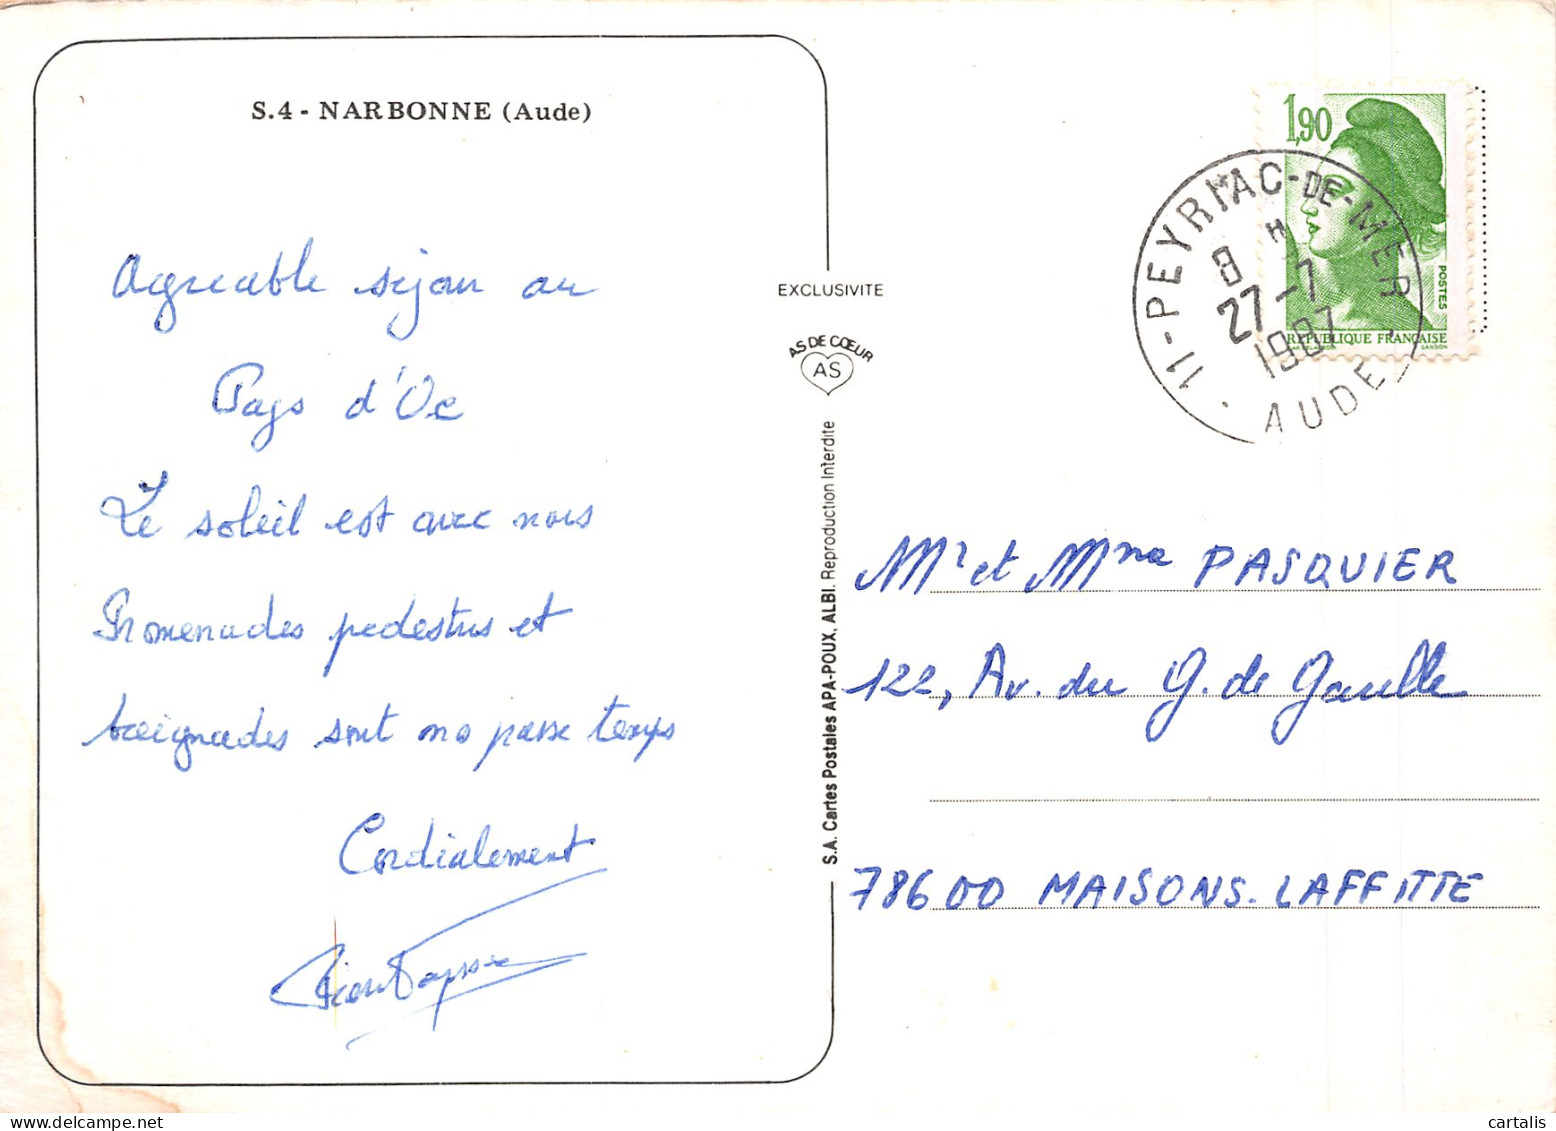 S.4 - NARBONNE (Aude)
Agreable sejour au
Pays d'Oc
Le soleil est avec nous
Promenades pedestres et
baignades sont nos passe temps
Cordialement
EXCLUSIVITE
AS DE CŒUR
AS
S.A. Cartes Postales APA-POUX, ALBI. Reproduction Interdite
1,90
POSTES
REPUBLIQUE FRANÇAISE
GANDON
11-PEYRIAC-DE-MER
8 H
27-7
1987
AUDE
Mr et Mme PASQUIER
122, Av. du G. de Gaulle
78600 MAISONS-LAFFITTE
cartalis